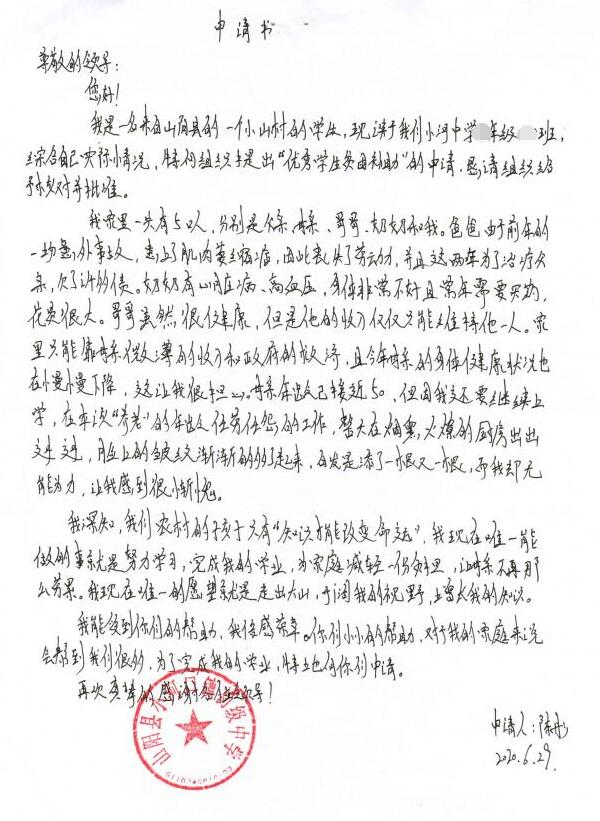 申请书
尊敬的领导:
您好!
我是一名来自山阳县的一个小山村的学生,现读于我们小河中学年级班,
综合自己实际情况,特向组织提出“优秀学生贫困补助”的申请,恳请组织给
予核对并批准。
我家里一共有5口人,分别是父亲、母亲、哥哥、奶奶和我。爸爸由于前年的
一场意外事故,患上了肌肉萎缩症,因此丧失了劳动力,并且这两年为了治疗父
亲,欠了许多债。奶奶有心脏病、高血压,身体非常不好且常年需要买药,
花费很大。哥哥虽然很健康,但是他的收入仅仅只能维持他一人。家
里只能靠母亲微薄的收入和政府的救济,且今年母亲的身体健康状况也
在慢慢下降,这让我很担心。母亲年龄已接近50,但因我还要继续上
学,在本该“养老”的年龄任劳任怨的工作,整天在烟熏火燎的厨房出出
进进,脸上的皱纹渐渐的多了起来,白发是添了一根又一根,而我却无
能为力,让我感到很惭愧。
我深知,我们农村的孩子只有“知识才能改变命运”,我现在唯一能
做的事就是努力学习,完成我的学业,为家庭减轻一份负担,让母亲不再那
么劳累。我现在唯一的愿望就是走出大山,开阔我的视野,增长我的知识。
我能受到你们的帮助,我倍感荣幸。你们小小的帮助,对于我的家庭来说
会帮到我们很多,为了完成我的学业,特此向你们申请。
再次真挚的感谢各位领导!
山阳县小河口镇初级中学
申请人:陈彤
2020.6.29